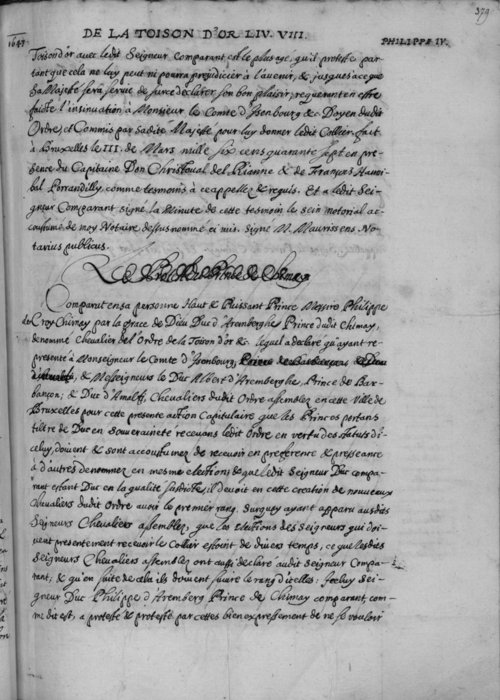 379
1647
DE LA TOISON D'OR LIV. VIII.
PHILIPPE IV.
Toison d'or avec ledit Seigneur Comparant est le plus agé, qu'il proteste par-
tant que cela ne luy peut ni pourra prejudicier à l'avenir, & jusques ace que
Sa Majesté sera servie de sur ce declarer son bon plaisir, requerant en estre
faicte l'insinuation à Monsieur le Comte d'Isenbourg &c Doyen dudit
Ordre, et Commis par sadite Majesté pour luy donner ledit Collier, fait
à Bruxelles le III. de Mars mille six cens quarante sept en pre-
sence du Capitaine Don Christoval del Rianne & de François Hanni-
bal Porrandilly, comme tesmoins à ce appellez & requis. Et a ledit Sei-
gneur Comparant signé la Minute de cette tesmoin le sein notorial ac-
coustumé de moy Notaire dessus nommé ci mis. signé M. Maurissens No-
tarius publicus.
Le Prince de Chimay
Comparut en sa personne Haut & Puissant Prince Messire Philippe
de Croy Chimay par la grace de Dieu Duc d'Aremberghe Prince dudit Chimay,
denommé Chevalier del Ordre de la Toison d'or &c. lequel a declaré qu'ayant re-
presenté à Monseigneur le Comte d'Isembourg,
& Messeigneurs le Duc Albert d'Aremberghe, Prince de Bar-
bançon; & Duc d'Amalfi, Chevaliers dudit Ordre assemblez en cette Ville de
Bruxelles pour cette presente action Capitulaire que les Princes portans
tiltre de Duc en Souveraineté recevans ledit Ordre en vertu des Statuts di-
celuy, doivent & sont accoustumez de recevoir en preference & presseance
à d'autres denommez en mesme elections, & que ledit Seigneur Duc compa-
rant estant Duc en la qualité susdicte, il devoit en cette creation de nouveaux
Chevaliers dudit Ordre avoir le premier rang. Surquoy ayant apparu ausdits
Seigneurs Chevaliers assemblez, que les elections des Seigneurs qui doi-
vent presentement recevoir le Collier estoint de divers temps, ce que lesdits
Seigneurs Chevaliers assemblez ont aussi declaré audit Seigneur Compa-
rant; & qu'en suite de cela ils doivent suivre le rang d'icelles: Iceluy Sei-
gneur Duc Philippe d'Aremberg Prince de Chimay comparant, com-
me dit est, a protesté & protesté par cettes bien expressement de ne se vouloir